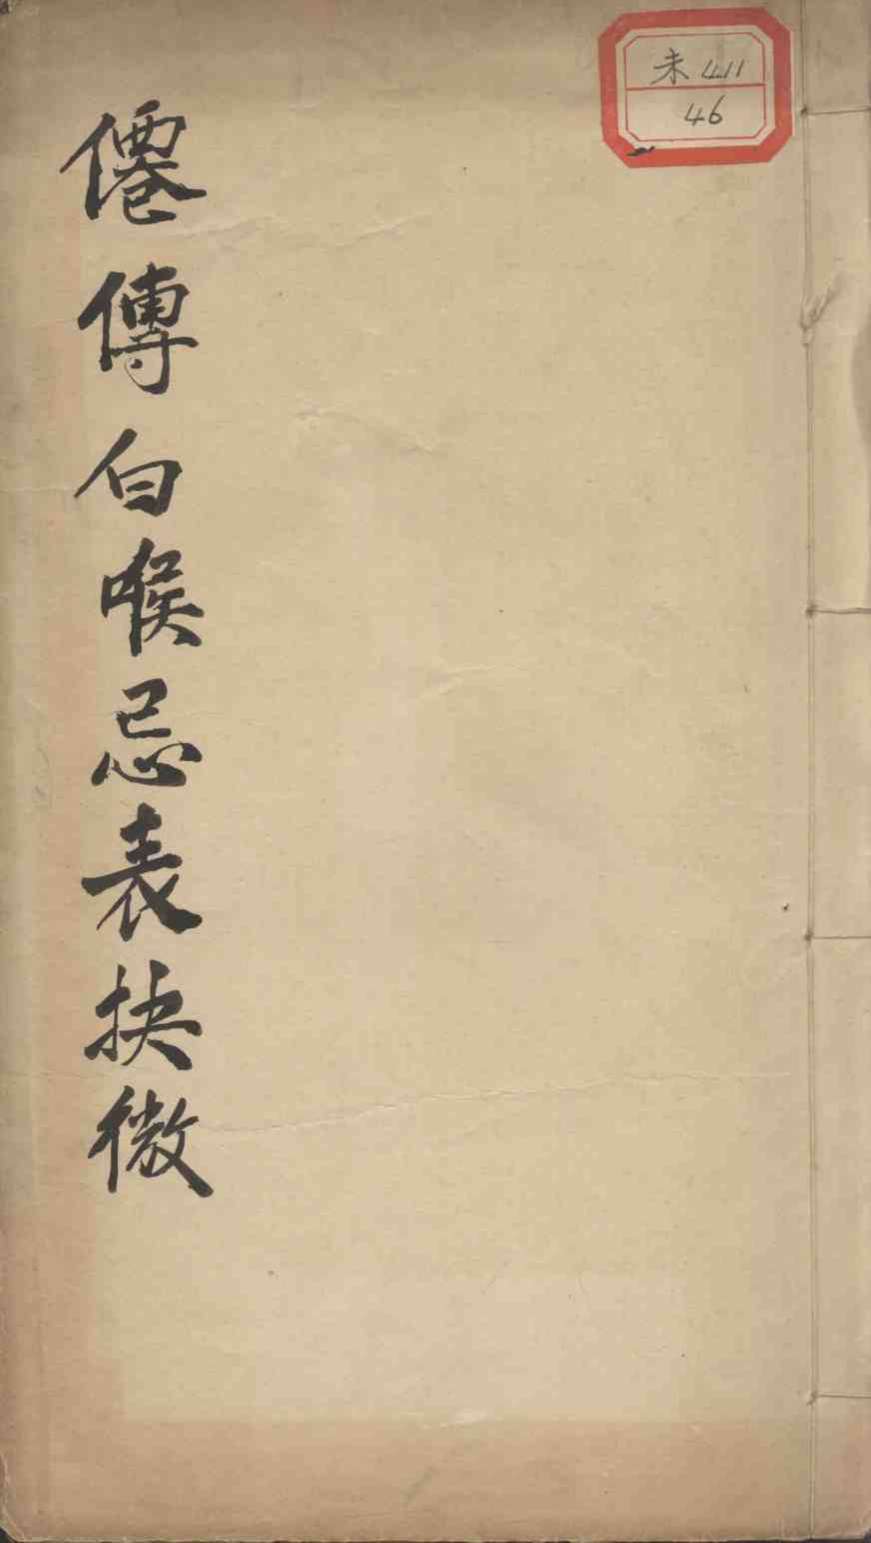 未411
46
僊傳白喉忌表抉微